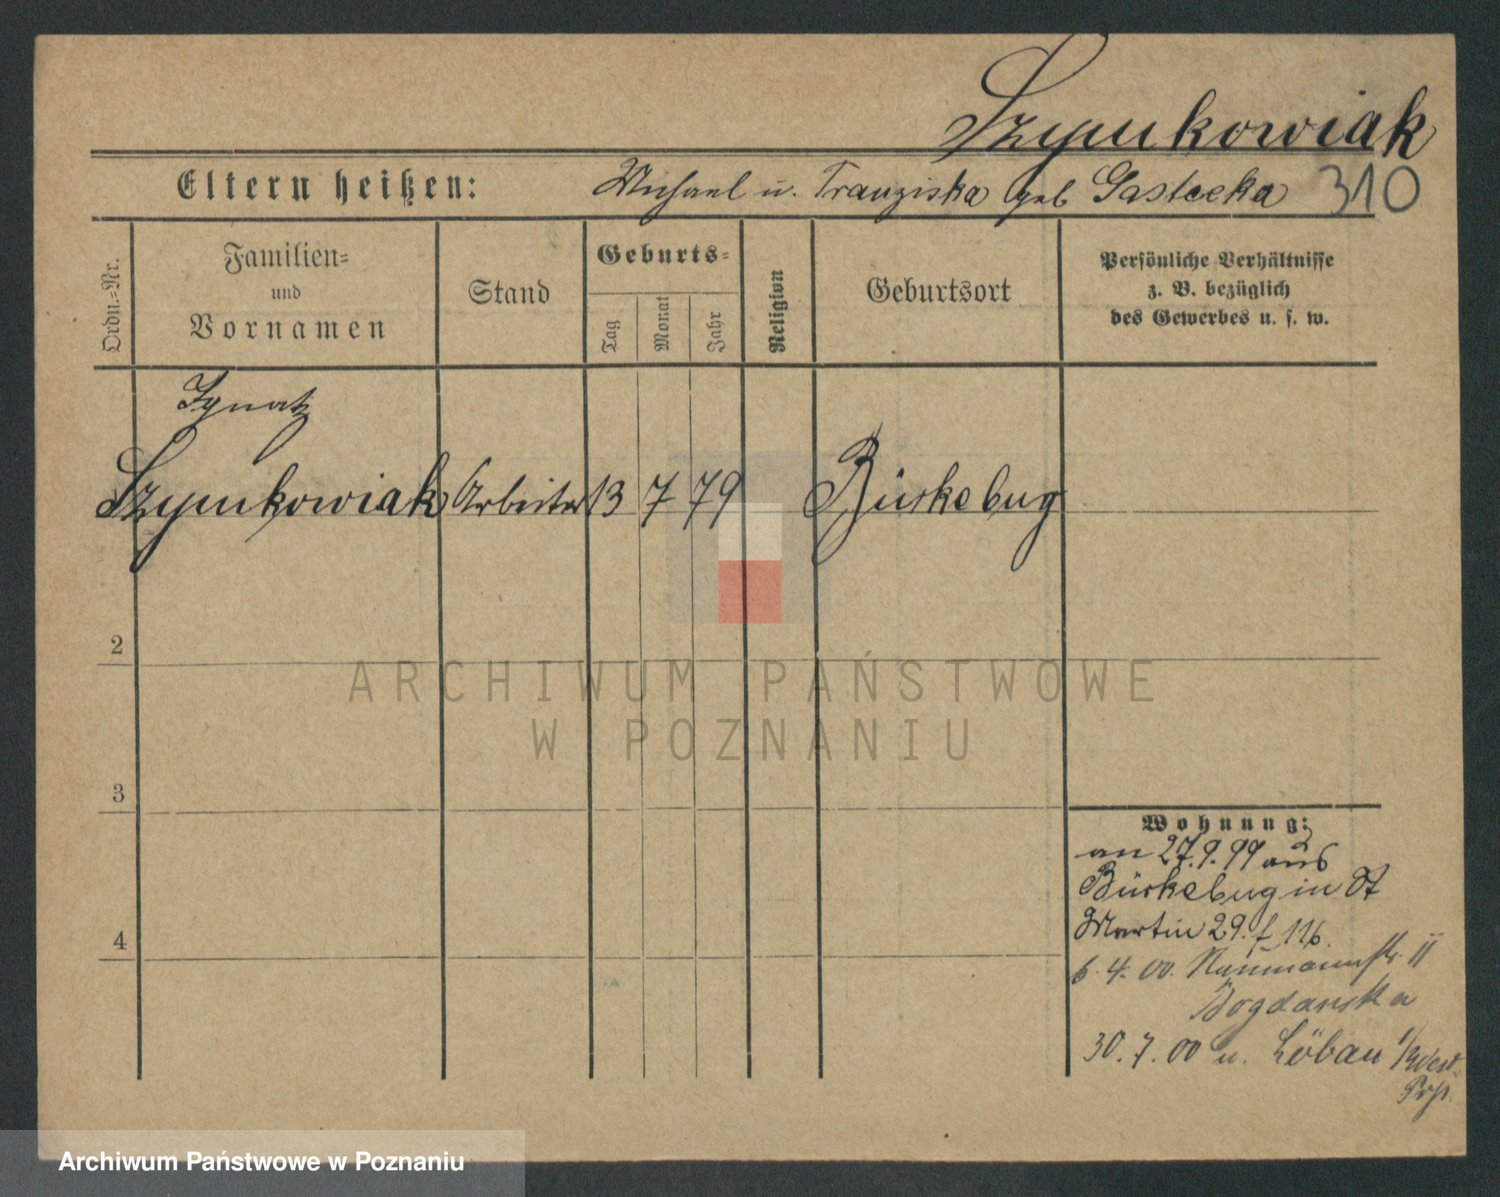 Szymkowiak
Eltern heißen: Michael u. Franziska geb Gastecka 310
Ordn.=Nr.
Familien=
und
Vornamen
Stand
Geburts=
Tag
Monat
Jahr
Religion
Geburtsort
Persönliche Verhältnisse
z. B. bezüglich
des Gewerbes u. s. w.
Ignatz
Szymkowiak Arbeiter 13 7 79 Bürkebug
2
ARCHIWUM PAŃSTWOWE
W POZNANIU
3
Wohnung:
an 27.9.99 aus
Bürkebug in St
Martin 29. f 116.
4
6.4.00. Naumannstr. II
Bogdanska
30.7.00 n. Löbau
Archiwum Państwowe w Poznaniu